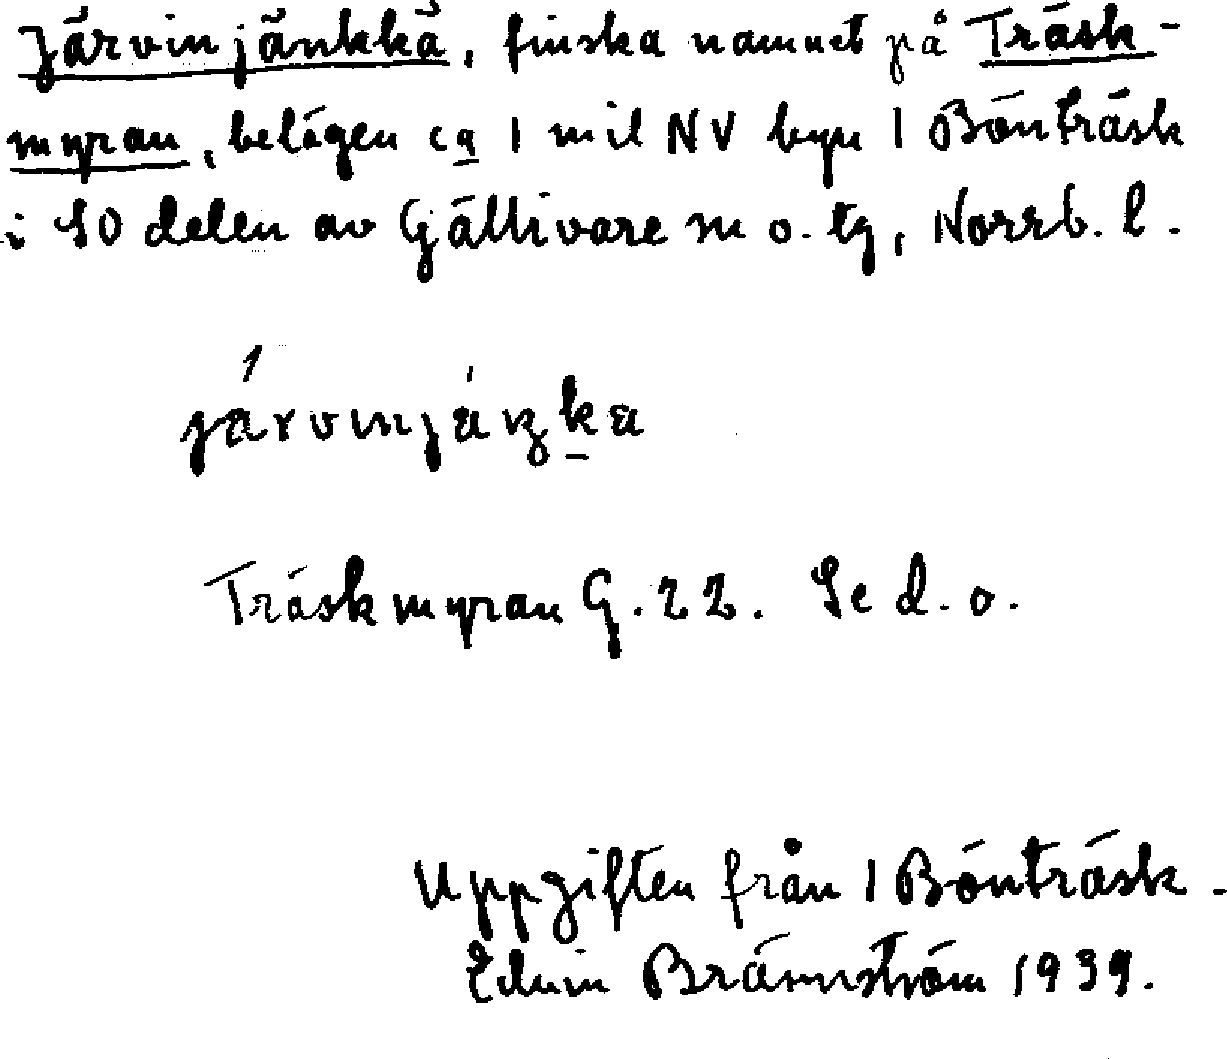 Järvinjänkkä, finska namnet på Träsk-
myran, belägen ca 1 mil NV byn 1 Bönträsk
i SO delen av Gällivare sn o. tg, Norrb. l.
järvinjäŋka
Träskmyran G. 22. Se d. o.
Uppgiften från 1 Bönträsk.
Edvin Brännström 1939.